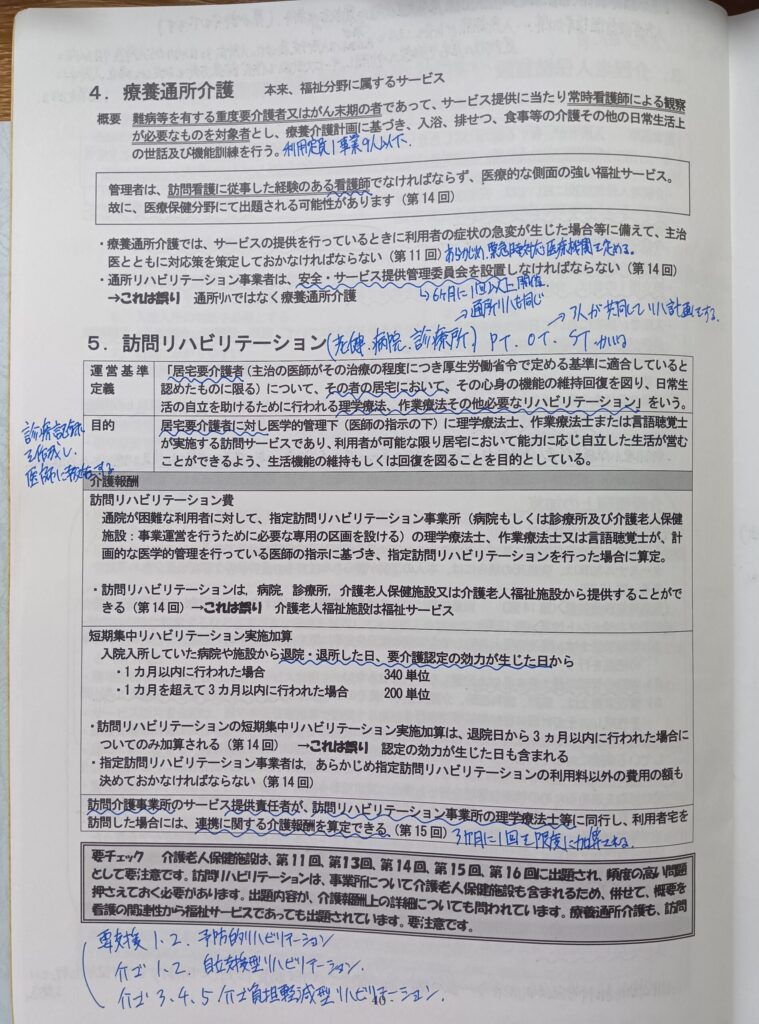 4．療養通所介護　本来、福祉分野に属するサービス
概要　難病等を有する重度要介護者又はがん末期の者であって、サービス提供に当たり常時看護師による観察
が必要なものを対象者とし、療養介護計画に基づき、入浴、排せつ、食事等の介護その他の日常生活上
の世話及び機能訓練を行う。利用定員1事業9人以下.
管理者は、訪問看護に従事した経験のある看護師でなければならず、医療的な側面の強い福祉サービス。
故に、医療保健分野にて出題される可能性があります（第14回）
・療養通所介護では、サービスの提供を行っているときに利用者の症状の急変が生じた場合等に備えて、主治
医とともに対応策を策定しておかなければならない（第11回）あらかじめ.緊急時対応医療機関を定める。
・通所リハビリテーション事業者は、安全・サービス提供管理委員会を設置しなければならない（第14回）
→これは誤り　通所リハではなく療養通所介護
↳6ヶ月に1回以上開催.
→通所リハも同じ
→3人が共同してリハ計画をする.
5．訪問リハビリテーション(老健.病院.診療所) PT. OT. STがいる
運営基準
定義
「居宅要介護者（主治の医師がその治療の程度につき厚生労働省令で定める基準に適合していると
認めたものに限る）について、その者の居宅において、その心身の機能の維持回復を図り、日常生
活の自立を助けるために行われる理学療法、作業療法その他必要なリハビリテーション」をいう。
診療記録
を作成し、
医師に報告する
目的
居宅要介護者に対し医学的管理下（医師の指示の下）に理学療法士、作業療法士または言語聴覚士
が実施する訪問サービスであり、利用者が可能な限り居宅において能力に応じ自立した生活が営む
ことができるよう、生活機能の維持もしくは回復を図ることを目的としている。
介護報酬
訪問リハビリテーション費
通院が困難な利用者に対して、指定訪問リハビリテーション事業所（病院もしくは診療所及び介護老人保健
施設：事業運営を行うために必要な専用の区画を設ける）の理学療法士、作業療法士又は言語聴覚士が、計
画的な医学的管理を行っている医師の指示に基づき、指定訪問リハビリテーションを行った場合に算定。
・訪問リハビリテーションは、病院、診療所、介護老人保健施設又は介護老人福祉施設から提供することがで
きる（第14回）→これは誤り　介護老人福祉施設は福祉サービス
短期集中リハビリテーション実施加算
入院入所していた病院や施設から退院・退所した日、要介護認定の効力が生じた日から
・1カ月以内に行われた場合　340単位
・1カ月を超えて3カ月以内に行われた場合　200単位
・訪問リハビリテーションの短期集中リハビリテーション実施加算は、退院日から3ヵ月以内に行われた場合に
ついてのみ加算される（第14回）　→これは誤り　認定の効力が生じた日も含まれる
・指定訪問リハビリテーション事業者は、あらかじめ指定訪問リハビリテーションの利用料以外の費用の額も
決めておかなければならない（第14回）
訪問介護事業所のサービス提供責任者が、訪問リハビリテーション事業所の理学療法士等に同行し、利用者宅を
訪問した場合には、連携に関する介護報酬を算定できる（第15回）3か月に1回を限度に加算される
要チェック　介護老人保健施設は、第11回、第13回、第14回、第15回、第16回に出題され、頻度の高い問題
として要注意です。訪問リハビリテーションは、事業所について介護老人保健施設も含まれるため、併せて、概要を
押さえておく必要があります。出題内容が、介護報酬上の詳細についても問われています。療養通所介護も、訪問
看護の関連性から福祉サービスであっても出題されています。要注意です。
要支援1.2. 予防的リハビリテーション
介ゴ1.2. 自立支援型リハビリテーション.
介ゴ3.4.5介ゴ負担軽減型リハビリテーション.